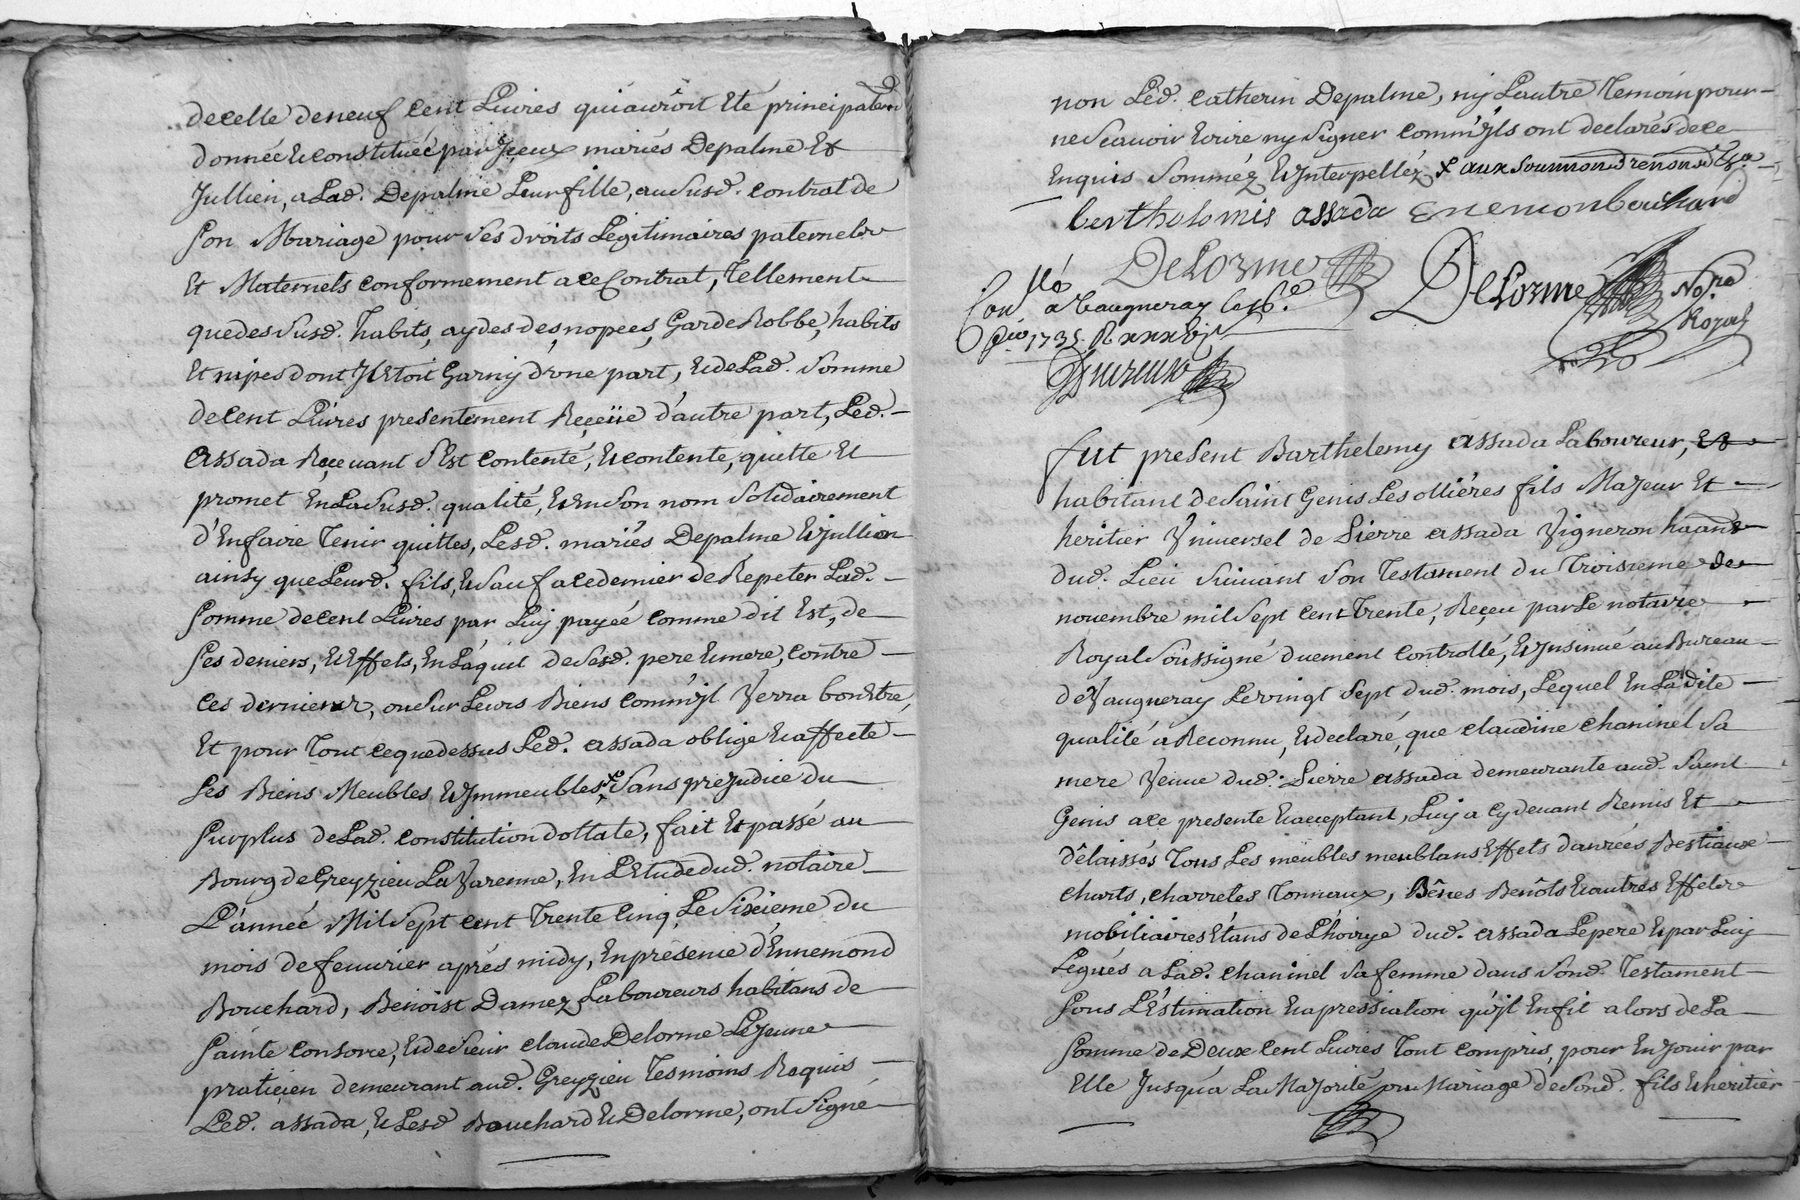 decelle de neuf Cent Livres qui auroit Eté principalem.t
donnée Et constituée par Iceux mariés Depalme Et
Jullien, a Lad. Depalme Leur fille, au Susd. contrat de
Son Mariage pour Ses droits Legitimaires paternels
Et Maternels conformement a ce Contrat, Tellement
que des Susd. habits, aydes des nopces, GardeRobbe, habits
Et nipes dont Il Etoit Garny d'vne part, Et de Lad. Somme
de Cent Livres presentement Reçeüe d'autre part, Led.
Assada Reçevant s'Est contenté, Et contente, quitte Et
promet En La Susd. qualité, Et En Son nom Solidairement
d'En faire Tenir quittes, Lesd. mariés Depalme Et Jullien
ainsy que Leurd. fils, Et Sauf a ce dernier de Repeter Lad.
Somme de Cent Livres par Luy payée comme dit Est, de
Ses deniers, Et Effets, En L'aquit de Sesd. pere Et mere, contre
Ces derniers, ou Sur Leurs Biens comm'jl Verra bon Etre,
Et pour Tout ce que dessus Led. Assada oblige Et affecte
Ses Biens Meubles Et Immeubles x Sans prejudice du
Surplus de Lad. constitution dottale, fait Et passé au
Bourg de Greyzieu La Varenne, En L'Etude dud. notaire
L'année Mil Sept Cent Trente Cinq Le Sixieme du
mois de feuvrier aprés midy, En présence d'Ennemond
Bouchard, Benoist Damez Laboureurs habitans de
Sainte Consorce, Et de Sieur Claude Delorme Le Jeune
pratiçien demeurant aud. Greyzieu Tesmoins Requis
Led. assada, Et Lesd. Bouchard Et Delorme, ont Signé
non Led. Catherin Depalme, ny L'autre Temoin pour
ne Scauoir Ecrire ny Signer comm'jls ont declarés de ce
Enquis Sommés Et Interpellés x aux Soumions renons
berthelomis assada Enemon bouchard
DeLorme DeLorme No.re
Royal
Con.llé a Vaugneray Le 16.e
1735. R
fut present Barthelemy Assada Laboureur, Et
habitant de Saint Genis Les olliéres fils Majeur Et
heritier Vniversel de Pierre Assada Vigneron
dud. Lieu Suiuant Son Testament du Troisieme de
nouembre mil Sept Cent Trente, Reçeu par Le notaire
Royal Soussigné duement Controllé, Et Insinué au Bureau
de Vaugneray Le vingt Sept dud. mois, Lequel En La dite
qualité a Reconnu, Et declaré, que Claudine Chaninel Sa
mere Veuue dud. Pierre Assada demeurante aud. Saint
Genis a ce presente Et acceptant, Luy a Cy deuant Remis Et
délaissés Tous Les meubles meublans Effets danrées Bestiaux
charts, charretes Tonneaux, Bênes Benôts Et autres Effets
mobiliaires Etans de L'hoirye dud. Assada Le pere Et par Luy
Legués a Lad. Chaninel Sa femme dans Sond. Testament
Sous L'Estimation Et apreciation qu'jl En fit alors de La
Somme de Deux Cent Livres Tout compris, pour En Jouir par
Elle Jusqu'a La Majorité ou Mariage de Sond. fils Et heritier